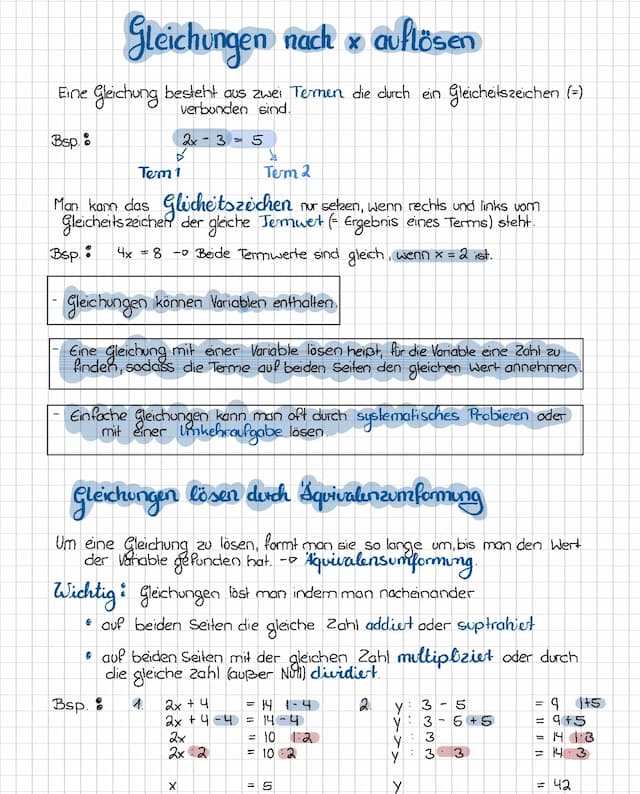 Gleichungen nach x auflösen
Eine Gleichung besteht aus zwei Termen die durch ein Gleicheitszeichen (=)
verbunden sind.
Bsp.: 2x - 3 = 5
Term 1 Term 2
Man kann das Glicheitszeichen nur setzen, wenn rechts und links vom
Gleicheitszeichen der gleiche Termwert (= Ergebnis eines Terms) steht.
Bsp.: 4x = 8 → Beide Termwerte sind gleich, wenn x = 2 ist.
- Gleichungen können Variablen enthalten.
- Eine Gleichung mit einer Variable lösen heißt, für die Variable eine Zahl zu
finden, sodass die Terme auf beiden Seiten den gleichen Wert annehmen.
- Einfache Gleichungen kann man oft durch systematisches Probieren oder
mit einer Umkehraufgabe lösen.
Gleichungen lösen durch Äquivalenzumformung
Um eine Gleichung zu lösen, formt man sie so lange um, bis man den Wert
der Variable gefunden hat. → Äquivalensumformung.
Wichtig: Gleichungen löst man indem man nacheinander
• auf beiden Seiten die gleiche Zahl addiert oder suptrahiert
• auf beiden Seiten mit der gleichen Zahl multipliziert oder durch
die gleiche Zahl (außer Null) dividiert.
Bsp.: 1. 2x + 4 = 14 | - 4 2. y : 3 - 5 = 9 | +5
2x + 4 - 4 = 14 - 4 y : 3 - 5 + 5 = 9 + 5
2x = 10 | : 2 y : 3 = 14 | · 3
2x : 2 = 10 : 2 y : 3 · 3 = 14 · 3
x = 5 y = 42